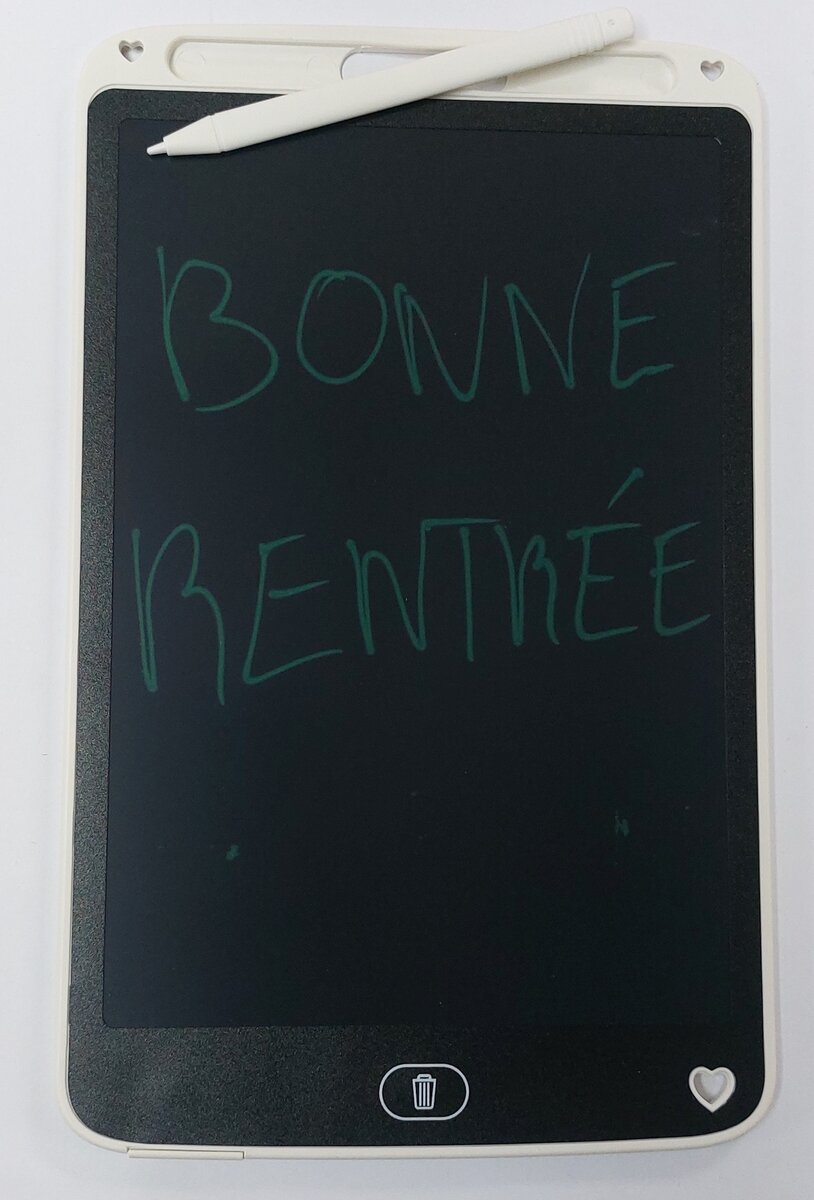 BONNE
RENTRÉE